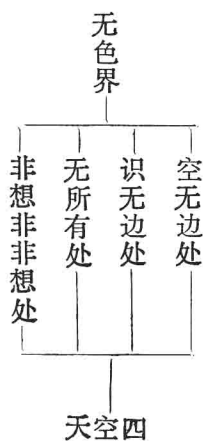 无色界
空无边处
识无边处
无所有处
非想非非想处
四空天